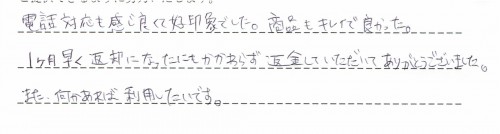 電話対応も感じ良くて好印象でした。商品もキレイで良かった。
1ヶ月早く返却になったにもかかわらず返金していただいてありがとうございました。
また、何かあれば利用したいです。